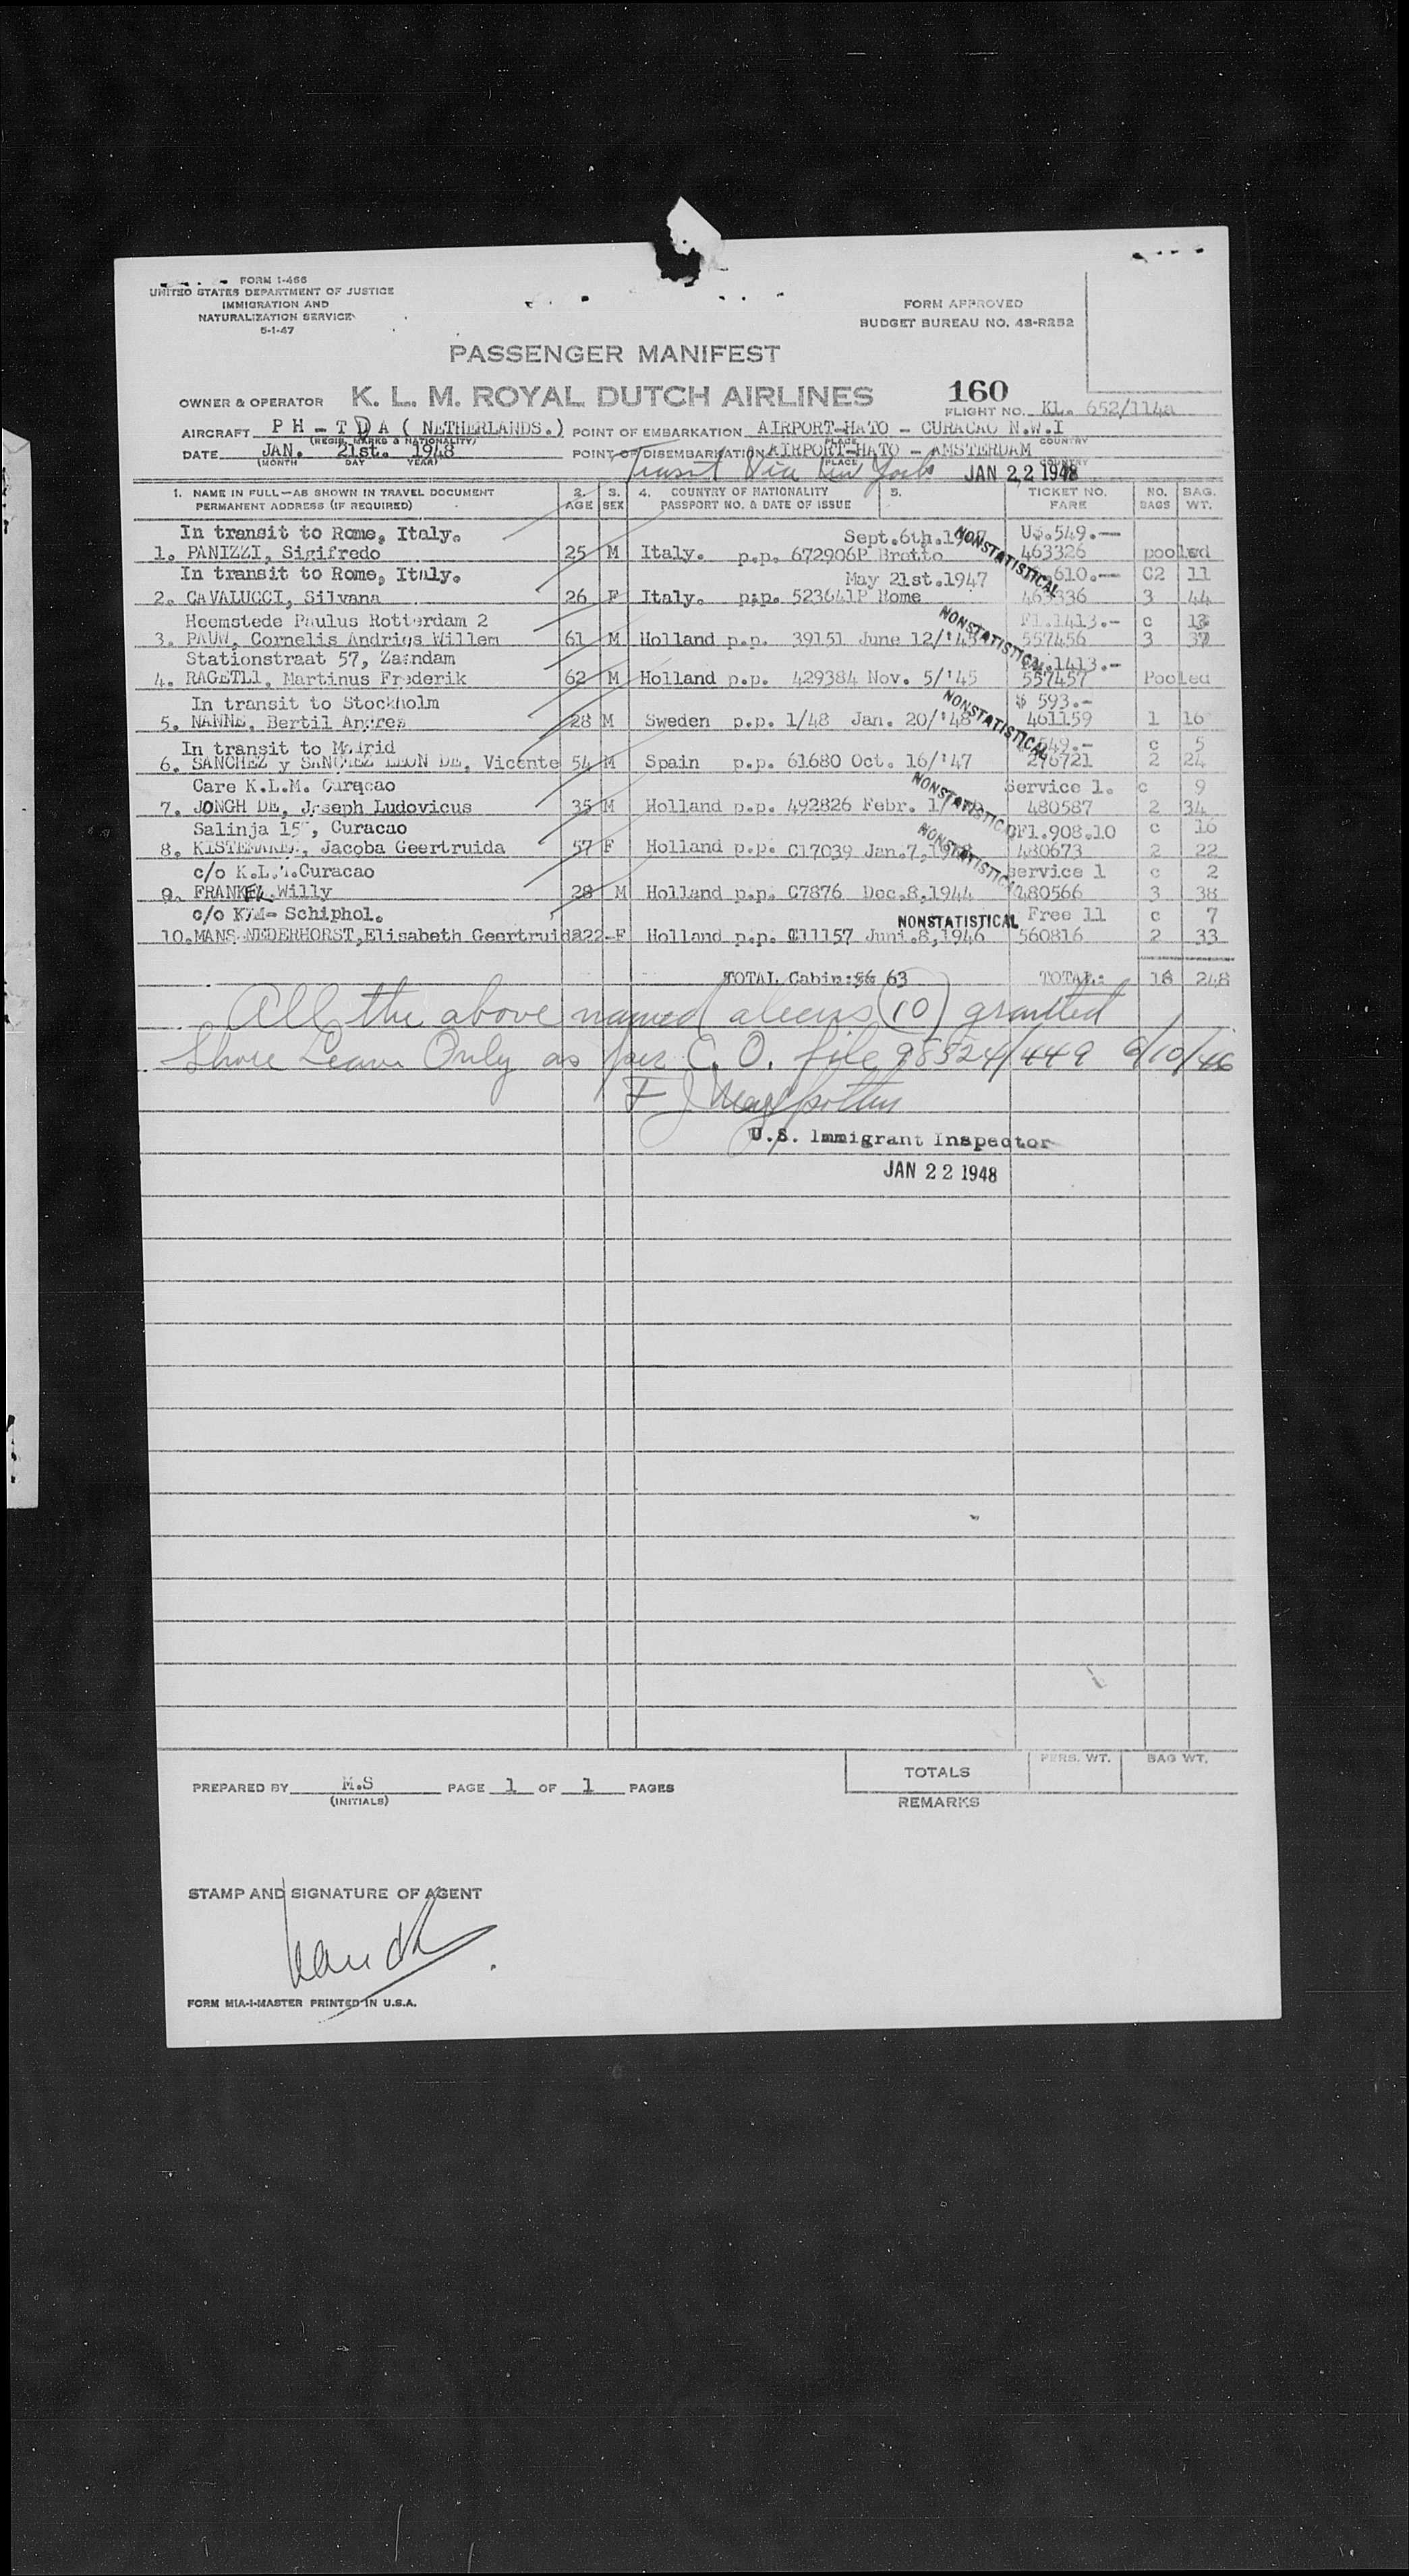 FORM I-466
UNITED STATES DEPARTMENT OF JUSTICE
IMMIGRATION AND
NATURALIZATION SERVICE
5-1-47
FORM APPROVED
BUDGET BUREAU NO. 43-R252
PASSENGER MANIFEST
OWNER & OPERATOR K. L. M. ROYAL DUTCH AIRLINES 160
FLIGHT NO. KL. 652/114a
AIRCRAFT P H - T D A ( NETHERLANDS.) POINT OF EMBARKATION AIRPORT-HATO - CURACAO N.W.I
(REGIS. MARKS & NATIONALITY) PLACE COUNTRY
DATE JAN. 21st. 1948 POINT OF DISEMBARKATION AIRPORT-HATO - AMSTERDAM
(MONTH DAY YEAR) (PLACE COUNTRY
Transit Via New York JAN 22 1948
1. NAME IN FULL—AS SHOWN IN TRAVEL DOCUMENT 2. 3. 4. COUNTRY OF NATIONALITY 5. TICKET NO. NO. BAG.
PERMANENT ADDRESS (IF REQUIRED) AGE SEX PASSPORT NO. & DATE OF ISSUE FARE BAGS WT.
In transit to Rome, Italy. Sept.6th. NONSTATISTICAL U$.549.—
1. PANIZZI, Sigifredo 25 M Italy. p.p. 672906P Bratto 463326 pooled
In transit to Rome, Italy. May 21st.1947 610.— C2 11
2. CAVALUCCI, Silvana 26 F Italy. p.p. 523641P Rome 463336 3 44
Heemstede Paulus Rotterdam 2 NONSTATISTICAL Fl.1413.— c 13
3. PAUW, Cornelis Andries Willem 61 M Holland p.p. 39151 June 12/'45 557456 3 37
Stationstraat 57, Zaandam 1413.—
4. RAGETLI, Martinus Frederik 62 M Holland p.p. 429384 Nov. 5/'45 557457 Pooled
In transit to Stockholm NONSTATISTICAL $ 593.—
5. NANNE, Bertil Andrea 28 M Sweden p.p. 1/48 Jan. 20/'48 461159 1 16
In transit to Madrid 549.— c 5
6. SANCHEZ y SANCHEZ LEON DE, Vicente 54 M Spain p.p. 61680 Oct. 16/'47 296721 2 24
Care K.L.M. Curacao NONSTATISTICAL Service 1. c 9
7. JONGH DE, Joseph Ludovicus 35 M Holland p.p. 492826 Febr. 480587 2 34
Salinja 15, Curacao NONSTATISTICAL Fl.908.10 c 16
8. Jacoba Geertruida 57 F Holland p.p. C17039 Jan.7, 480673 2 22
c/o K.L.M.Curacao Service 1 c 2
9. FRANKEL Willy 28 M Holland p.p. C7876 Dec.8,1944 480566 3 38
c/o KLM- Schiphol. NONSTATISTICAL Free 11 c 7
10.MANS NEDERHORST,Elisabeth Geertruida 22-F Holland p.p. C11157 Juni.8,1946 560816 2 33
TOTAL Cabin: 56 63 TOTAL: 18 248
All the above named aliens (10) granted
Shore Leave Only as per C. O. file 98524/449 6/10/46
U.S. Immigrant Inspector
JAN 22 1948
PERS. WT. BAG WT.
TOTALS
PREPARED BY M.S PAGE 1 OF 1 PAGES
(INITIALS)
REMARKS
STAMP AND SIGNATURE OF AGENT
FORM MIA-I-MASTER PRINTED IN U.S.A.